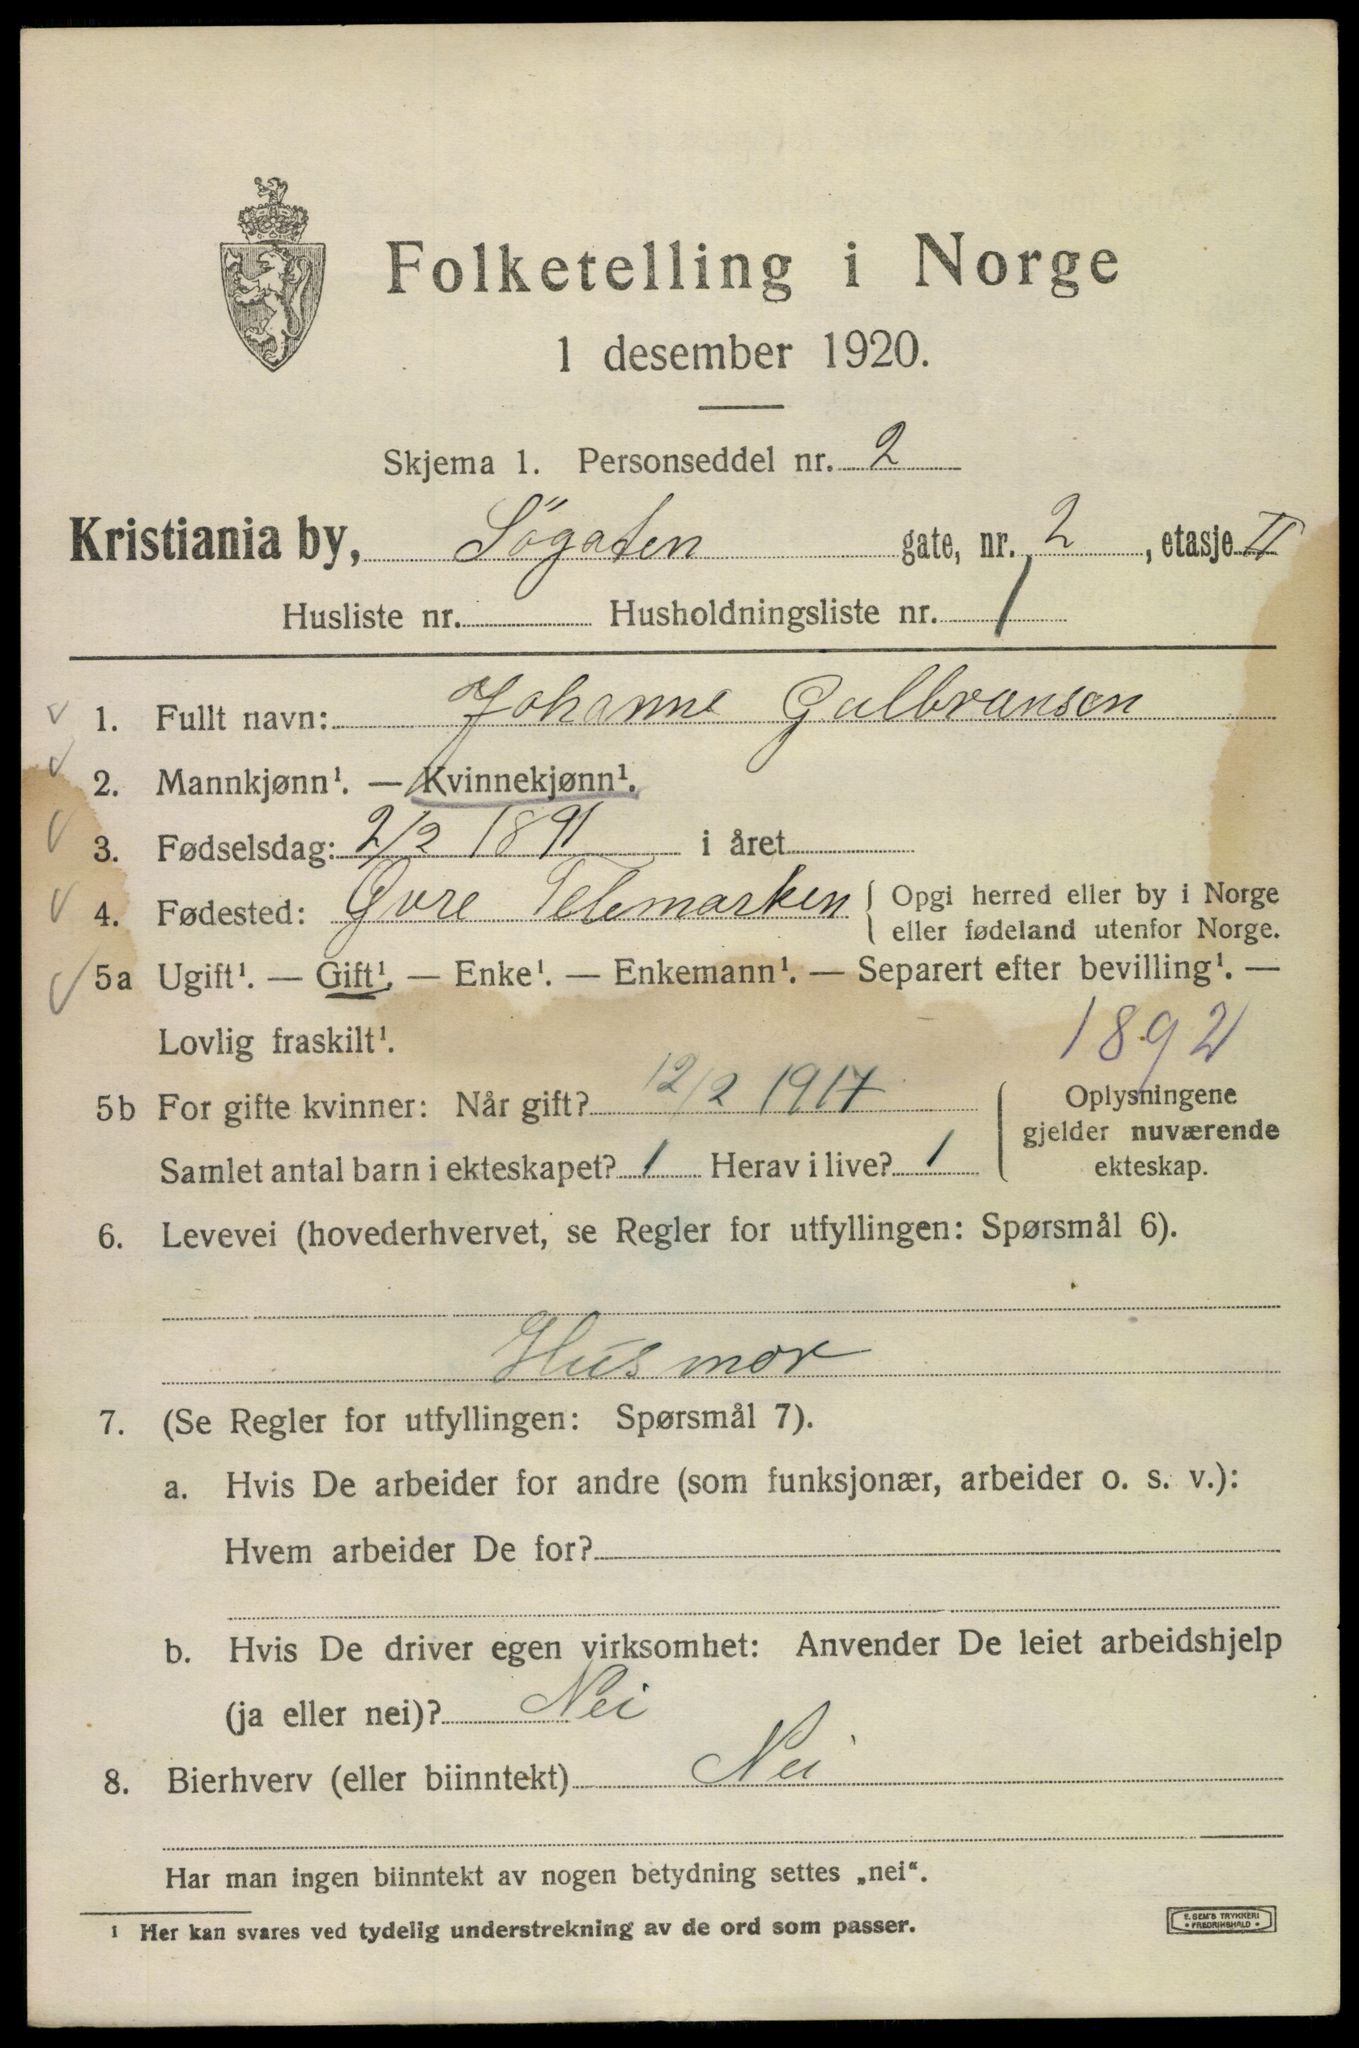 Folketelling i Norge
1 desember 1920.
Skjema 1. Personseddel nr. 2
Kristiania by, Sögaten gate, nr. 2, etasje II
Husliste nr. Husholdningsliste nr. 1
1. Fullt navn: Johanne Gulbransen
2. Mannkjønn¹. — Kvinnekjønn¹.
3. Fødselsdag: 2/2 1891 i året
4. Fødested: Øvre Telemarken { Opgi herred eller by i Norge
eller fødeland utenfor Norge.
5a Ugift¹. — Gift¹. — Enke¹. — Enkemann¹. — Separert efter bevilling¹. —
Lovlig fraskilt¹.
1892
5b For gifte kvinner: Når gift? 12/2 1917
Samlet antal barn i ekteskapet? 1 Herav i live? 1
{ Oplysningene
gjelder nuværende
ekteskap.
6. Levevei (hovederhvervet, se Regler for utfyllingen: Spørsmål 6).
Husmor
7. (Se Regler for utfyllingen: Spørsmål 7).
a. Hvis De arbeider for andre (som funksjonær, arbeider o. s. v.):
Hvem arbeider De for?
b. Hvis De driver egen virksomhet: Anvender De leiet arbeidshjelp
(ja eller nei)? Nei
8. Bierhverv (eller biinntekt) Nei
Har man ingen biinntekt av nogen betydning settes „nei“.
¹ Her kan svares ved tydelig understrekning av de ord som passer.
E. SEM'S TRYKKERI
• FREDRIKSHALD •